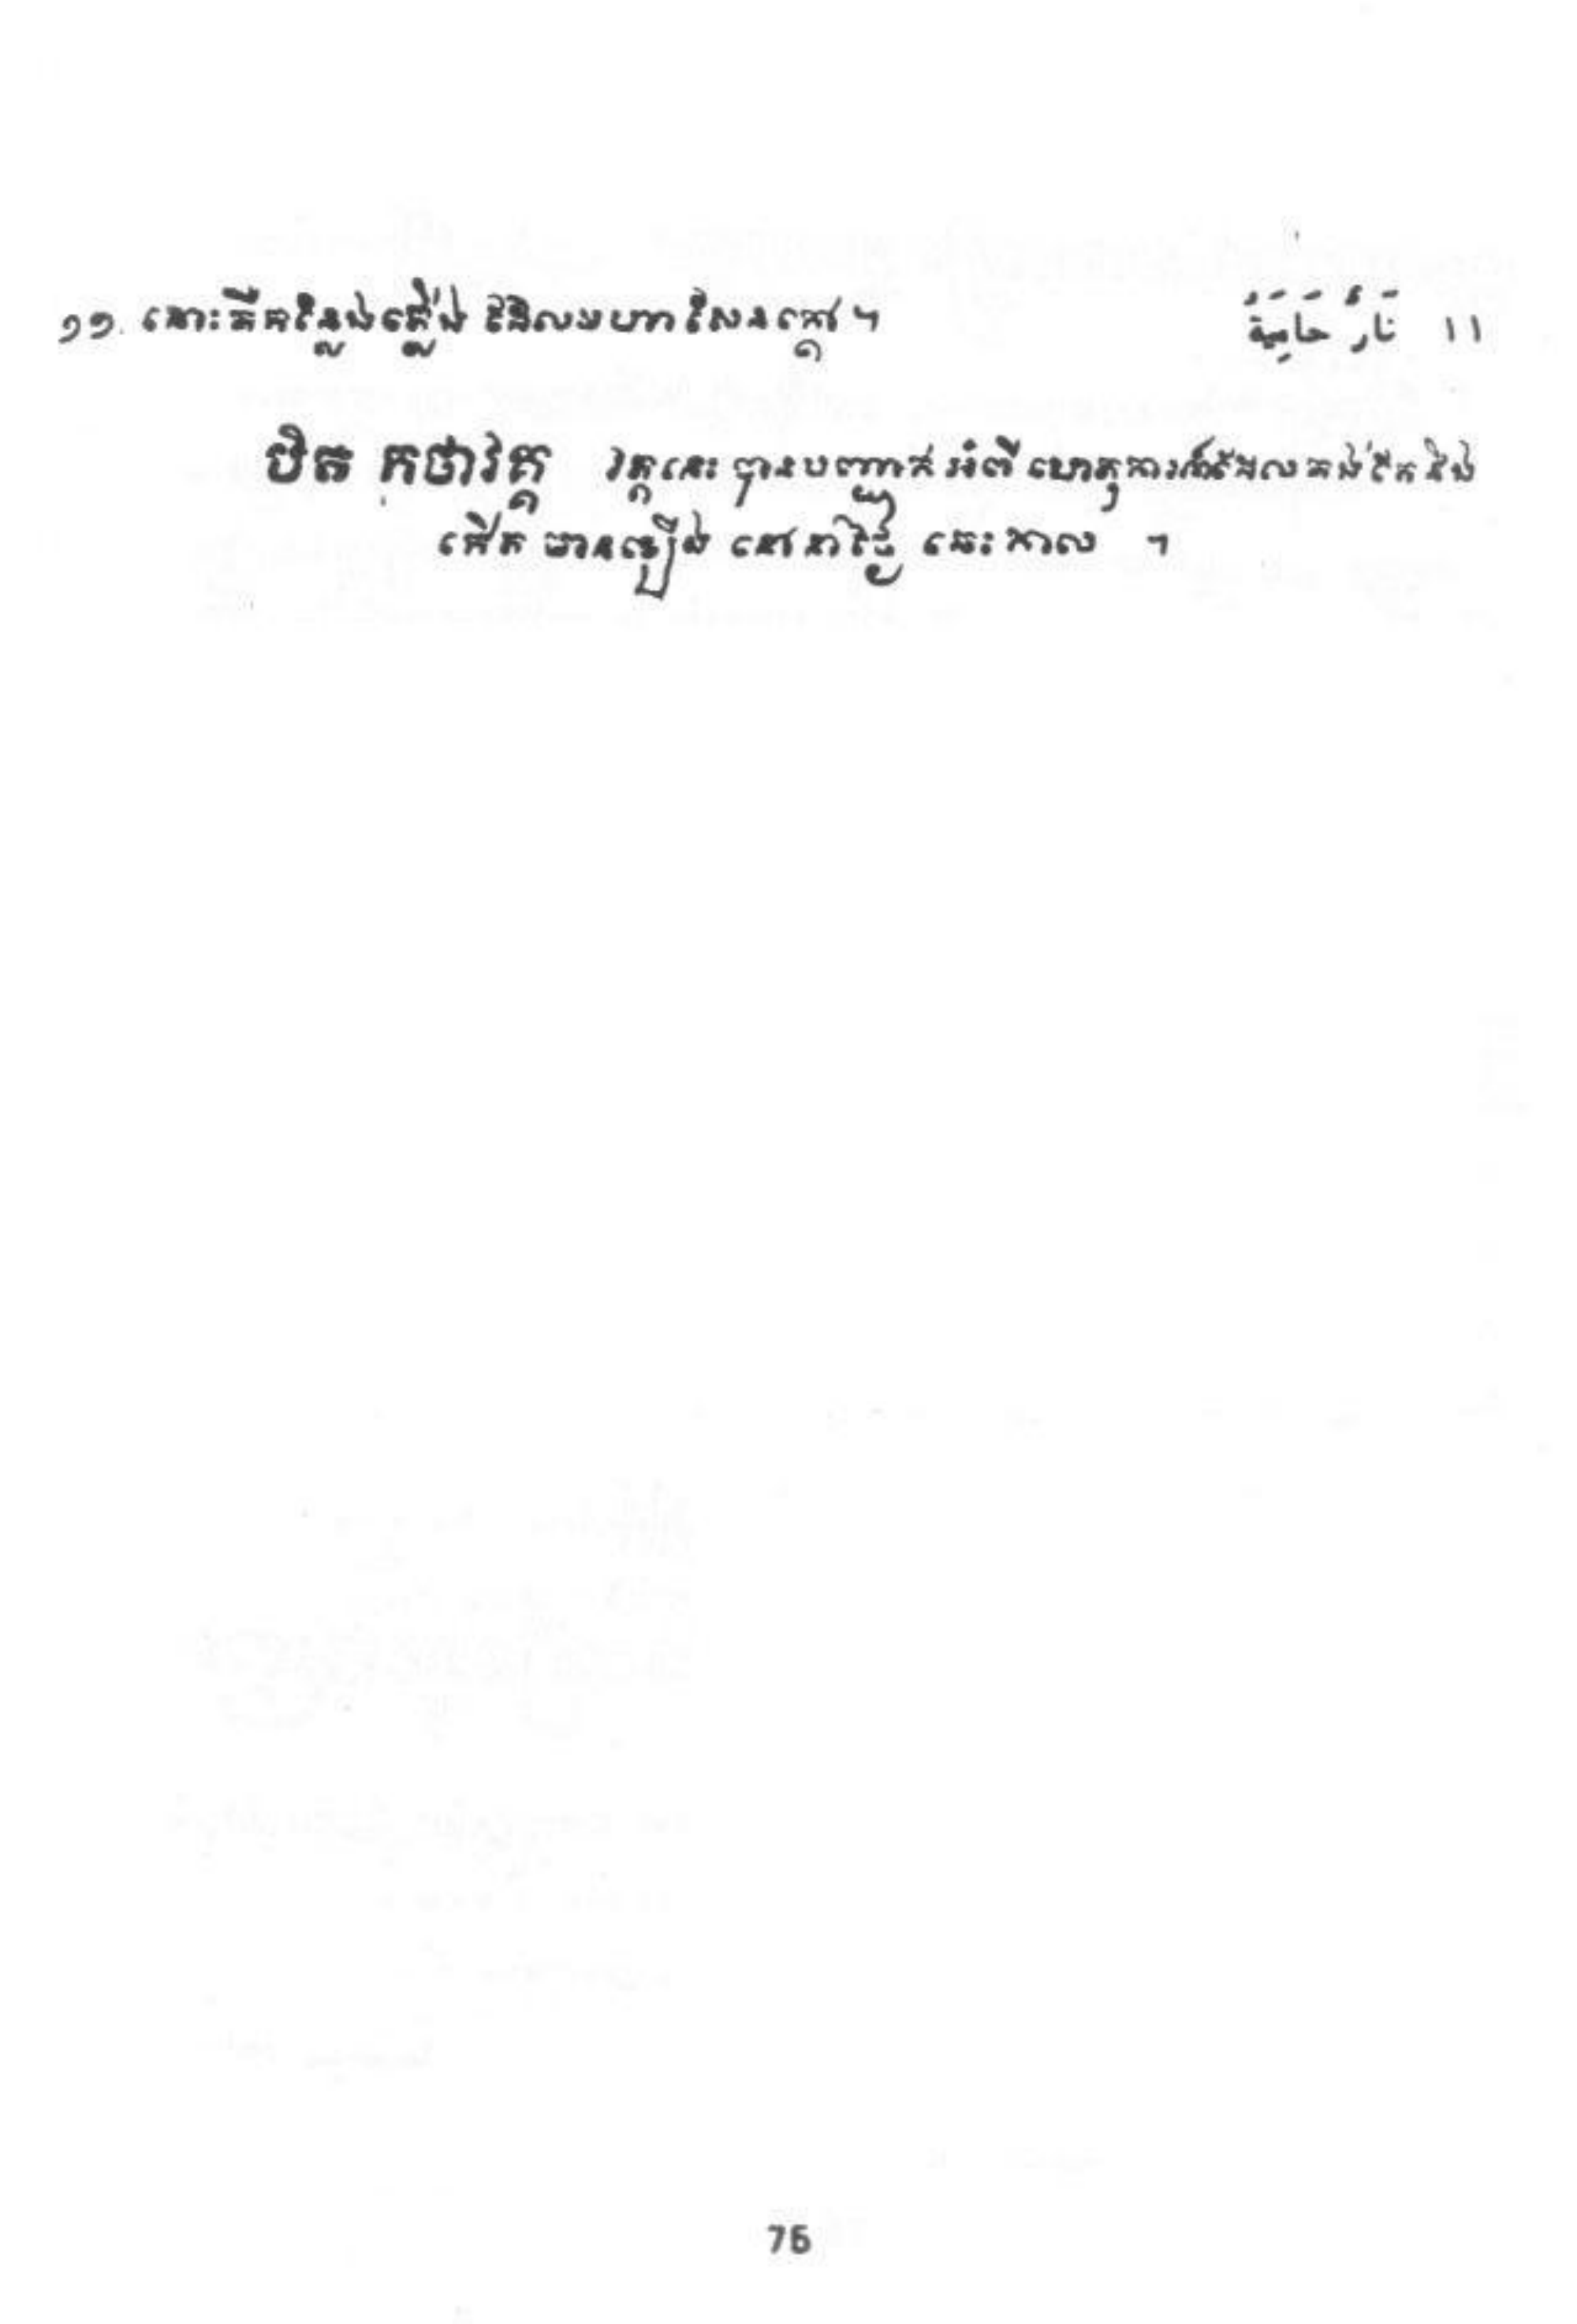 ១១. នោះគឺកន្លែងភ្លើង ដែលមហាសែនក្តៅ ។ ١١ نَارٌ حَامِيَةٌ
បិត កថាវគ្គ វគ្គនេះ បានបញ្ជាក់ អំពី ហេតុការណ៍ដែលគង់តែនឹង
កើត មានឡើង នៅនាថ្ងៃ ឆេះកាល ។
76